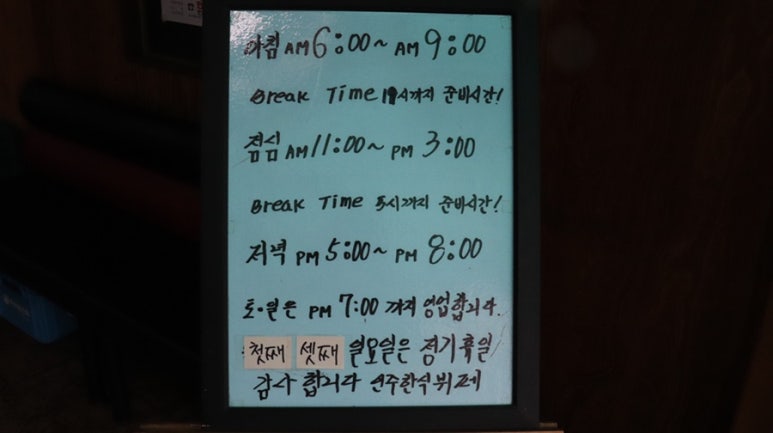 아침 AM 6:00~ AM 9:00
Break Time 11시까지 준비시간!
점심 AM 11:00~ PM 3:00
Break Time 5시까지 준비시간!
저녁 PM 5:00~ PM 8:00
토·일은 PM 7:00 까지 영업합니다.
첫째 셋째 일요일은 정기휴일
감사 합니다 연주한식뷔페